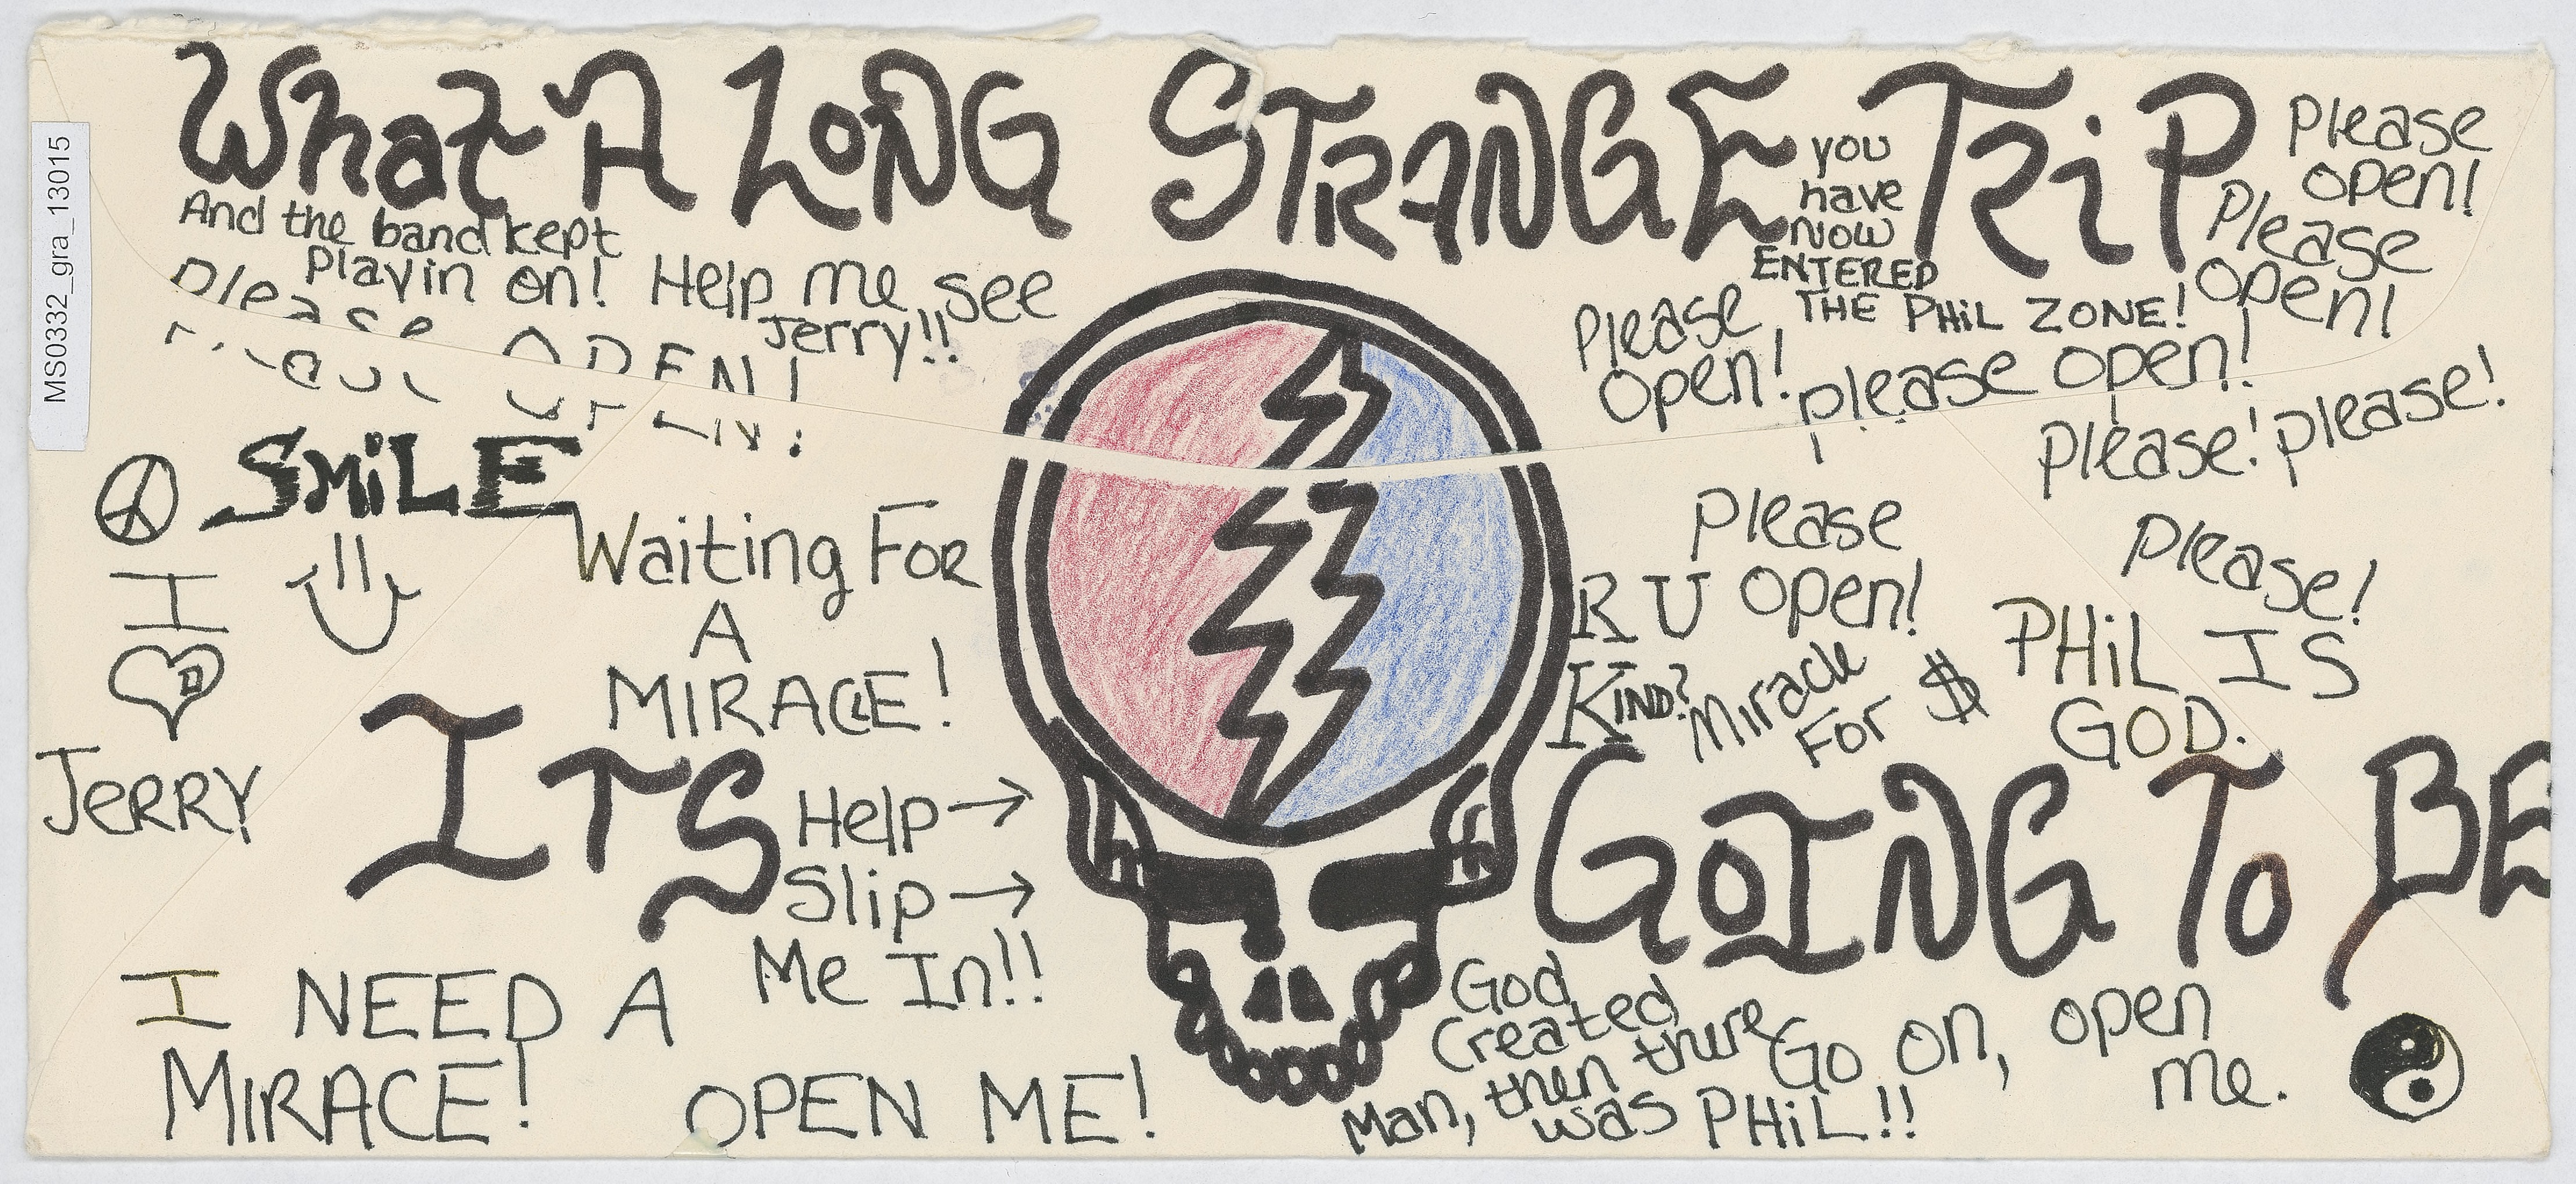 MS0332_gra_13015
What A LONG STRANGE TRiP
And the band kept
playin on!
Help me see
Jerry!!
Please OPEN!
you
have
NOW
ENTERED
THE PHiL ZONE!
Please
open!
Please
open!
Please
open!
please open!
please! please!
SMiLE
I
D
JERRY
Waiting FOR
A
MIRACLE!
Please
open!
Please!
R U
KIND?
Miracle
For $
PHiL IS
GOD.
ITS GOING To BE
Help →
Slip →
Me In!!
I NEED A
MIRACE!
OPEN ME!
God
Created
Man, then there
was PHiL!!
Go on, open
me.